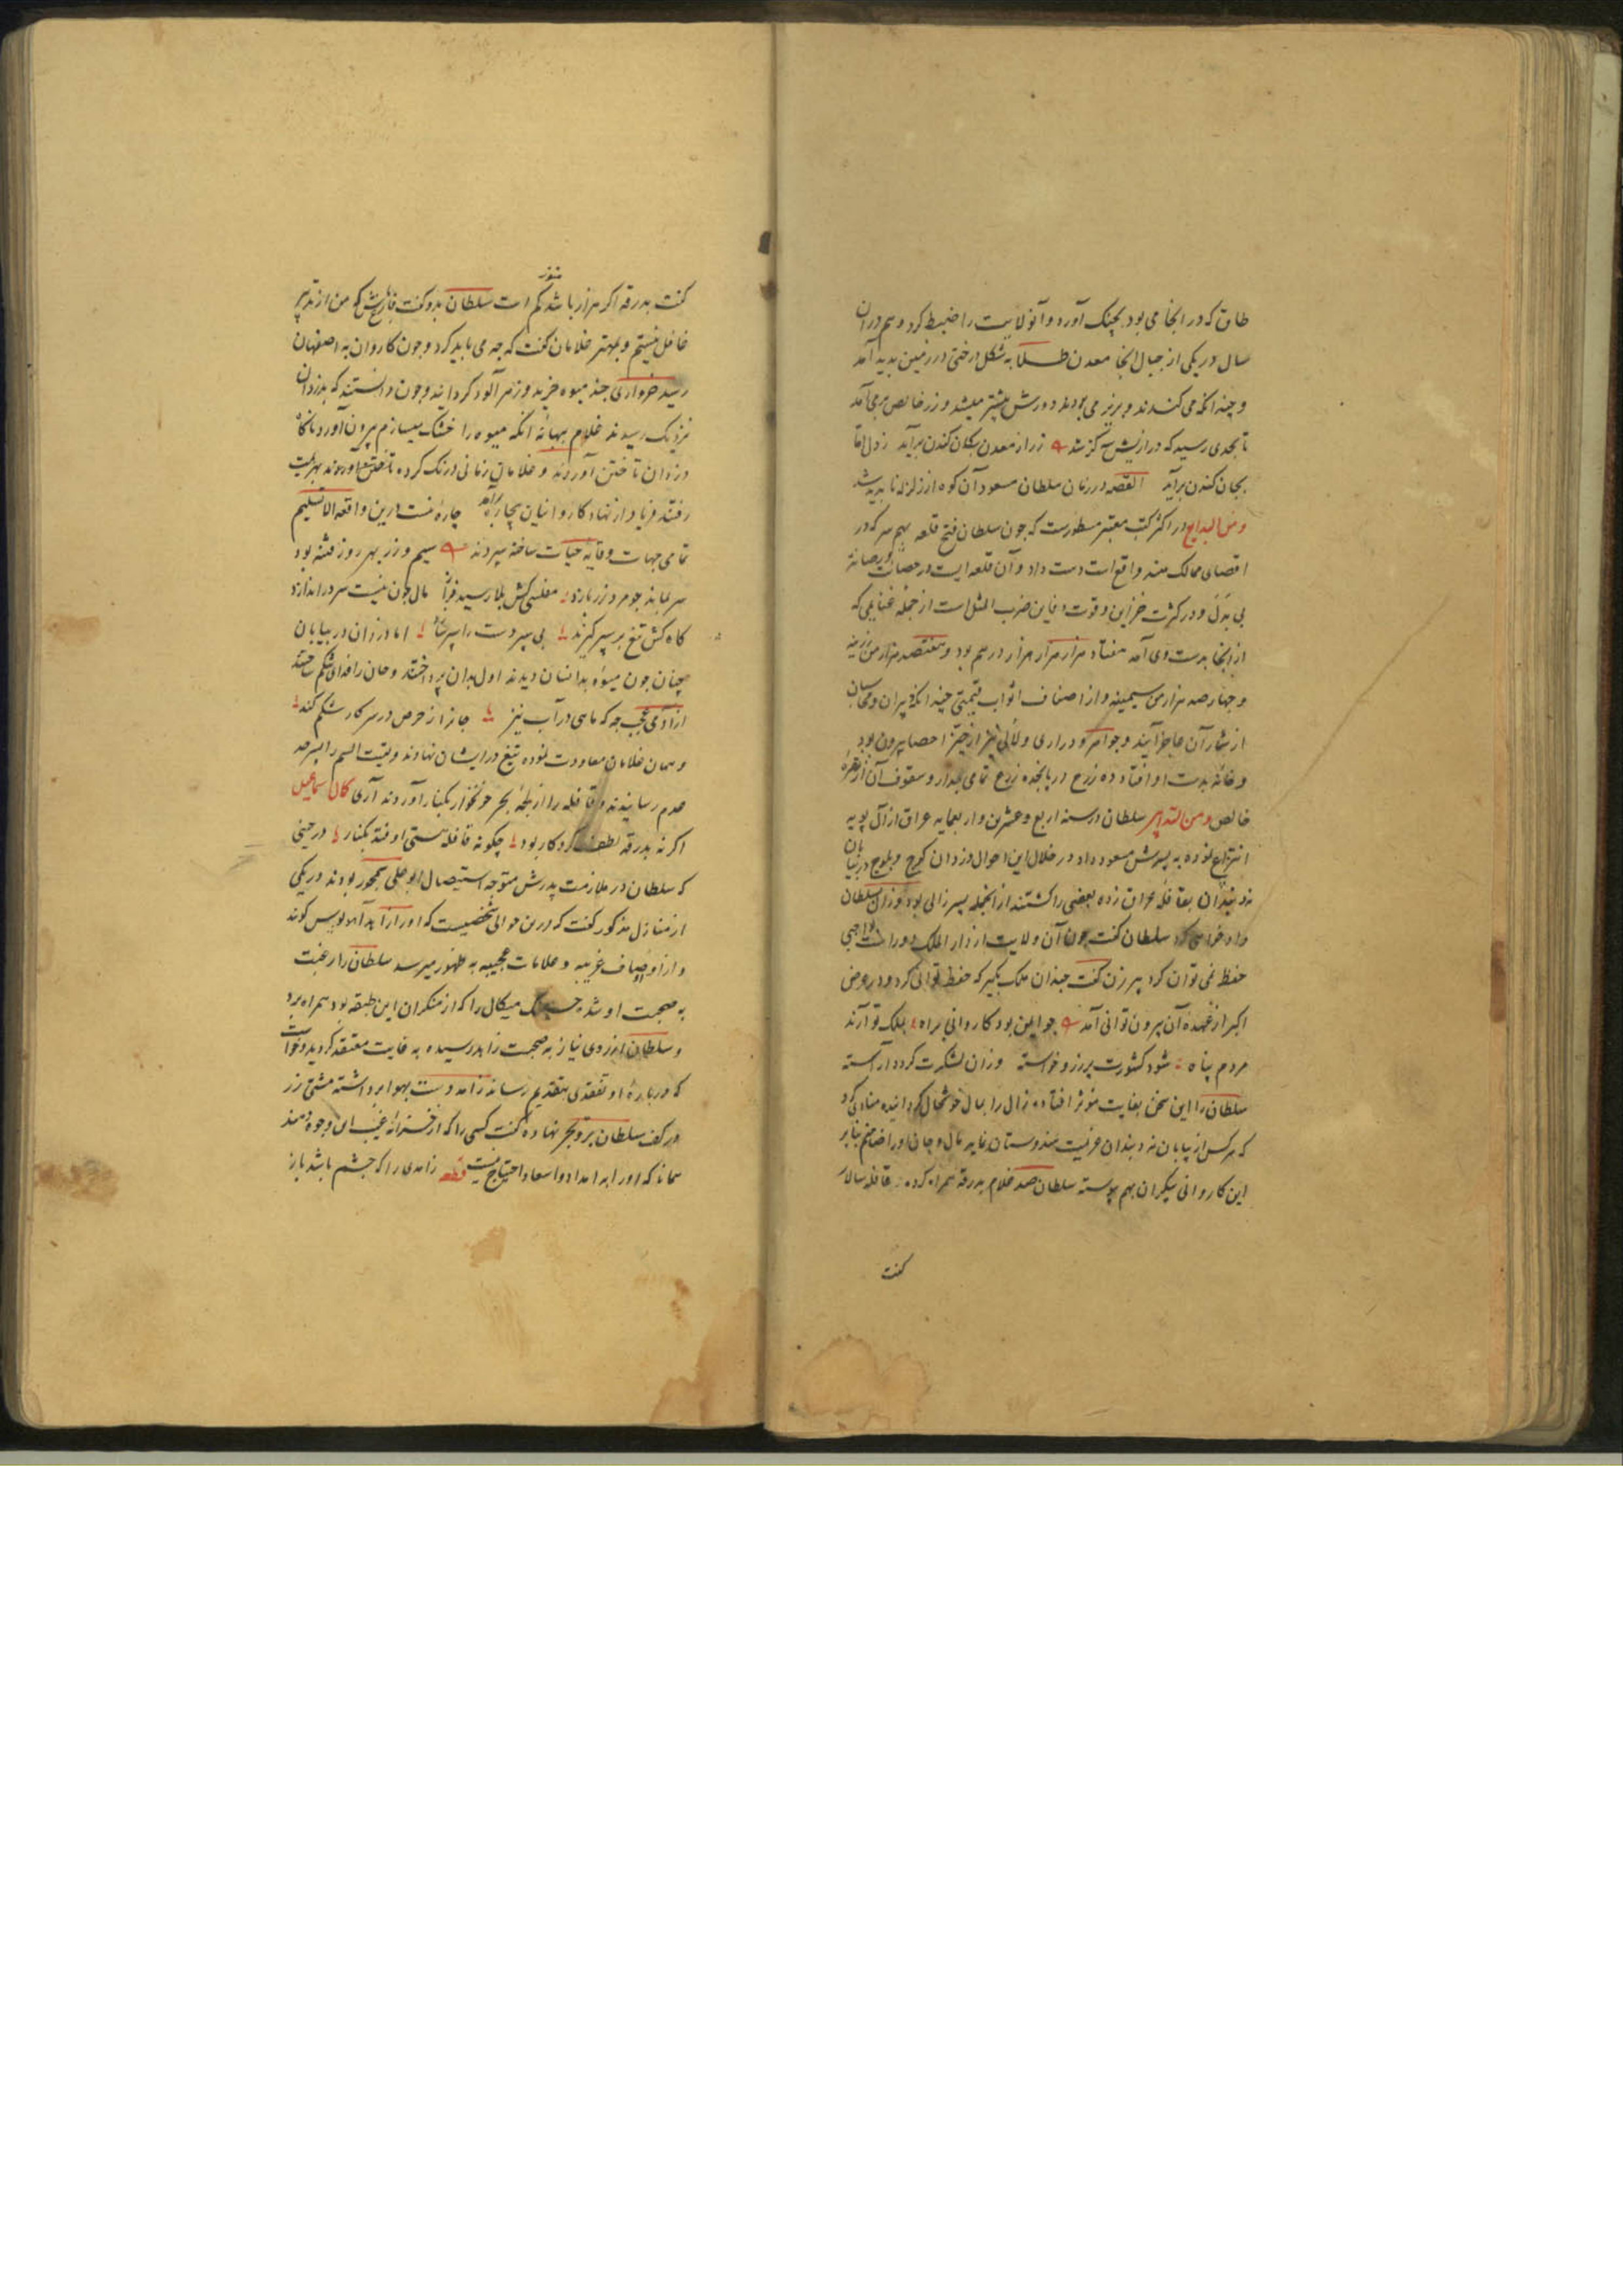 طاق که در انجا می بود بچنک آورد و آنولایت را ضبط کرد و هم دران
سال در یکی از جبال انجا معدن طلا به شکل درختی در زمین پدید آمد
و چندانکه می کندند و بزیر می بودند دورش بیشتر میشد و زر خالص برمی آمد
تا بحدی رسید که درازیش سه کز شد زر از معدن بکان کندن برآید
بجان کندن برآید القصه در زمان سلطان مسعود آن کوه از زلزله ناپدید شد
ومن البدایع در اکثر کتب معتبر مسطورست که چون سلطان فتح قلعه بهیم سر که در
اقصای ممالک هند واقع است دست داد و آن قلعه ایست در حصانت و رصانة
بی بدل و در کثرت خزاین و قوت دفاین ضرب المثل است از جمله غنایمی که
از انجا بدست وی آمد هفتاد هزار هزار هزار درهم بود و هفتصد هزار من زرینه
و چهارصد هزار من سیمینه و از اصناف اثواب قیمتی چندانکه دبیران و محاسبان
از شمار آن عاجز آیند و جواهر و دراری و لآلی نیز از حیز احصا بیرون بود
و خانه بدست او افتاد ده زرع در پانخده زرع تمامی جدار و سقوف آن از نقره
خالص ومن التدابیر سلطان در سنه اربع و عشرین و اربعمایه عراق از آل بویه
انتزاع نموده به پسرش مسعود داد در خلال این احوال دزدان کوچ و بلوچ در بیابان
نه دبندان بقافله عراق زده بعضی را کشتند از انجمله پسر زالی بود نزد سلطان
دادخواهی کرد سلطان کفت چون آن ولایت از دار الملک دور است
حفظ نمی توان کرد پیرزن کفت چندان ملک بکیر که حفظ توانی کرد و در عرض
اکبر از عهده آن بیرون توانی آمد چو ایمن بود کاروانی براه بملک تو آرند
مردم پناه شود کشورت پر زر و خواسته وزان لشکرت کردد آراسته
سلطان را این سخن بغایت موثر افتاده زال را بمال خوشحال کردانیده منادی کرد
که هر کس از بیابان نه دبندان عزیمت هندوستان نماید مال و جان او را ضامنم بنابر
این کاروانی بیکران بهم پیوسته سلطان صد غلام بدرقه همراه کرده قافله سالار
کفت
کفت بدرقه اکر هزار باشد هنوز کم است سلطان بدو کفت فارغ باش که من از تدبیر
غافل نیستم و بمهتر غلامان کفت که چه می باید کرد و چون کاروان به اصفهان
رسید خرواری چند میوه خرید و زهرآلود کردانید و چون دانستند که بدزدان
نزدیک رسیدند غلام ببهانه انکه میوه را خشک میسازم بیرون آورد ناکاه
دزدان تاختن آوردند و غلامان زمانی درنک کرده بهزیمت
رفتند فریاد از نهاد کاروانیان بیچاره برآمد چاره نیست درین واقعه الا تسلیم
تمامی جهات وقایه حیات ساخته سپردند سیم و زر بهر روز فتنه بود
سر نماند چو مرد زر بازد مفلسی کش بلا رسید مال چون نیست سر دراندازد
کاه کش تیغ بر سپر کیرند بی سپر دست را سپر سازد اما دزدان در بیابان
چنان چون میوه بدانسان دیدند اول بدان پرداختند و جان را فدای شکم ساختند
از آدمی عجب چه که ماهی در آب نیز جان از حرص در سر کار شکم کند
و همان غلامان معاودت نموده تیغ در ایشان نهادند و بقیت السم را بسرحد
عدم رسانیدند و قافله را از لجه بحر خونخوار بکنار آوردند آری کمال اسماعیل
اکر نه بدرقه لطف کردکار بود چکونه قافله هستی اوفتد بکنار در حینی
که سلطان در ملازمت پدرش متوجه استیصال ابو علی سیمجور بودند در یکی
از منازل مذکور کفت که درین حوالی شخصیست که او را زاهد آهوپوش کویند
و از اوصاف غریبه و علامات عجیبه به ظهور میرسد سلطان را رغبت
به صحبت او شد حسنک میکال را که از منکران این طبقه بود همراه برد
و سلطان از روی نیاز به صحبت زاهد رسیده به غایت معتقد کردید و خواست
که درباره او تفقدی بتقدیم رساند زاهد دست بهوا برداشته مشتی زر
در کف سلطان بر و بحر نهاده کفت کسی را که از خزانه غیب این وجوه دهند
همانا که او را به امداد و اسعاد احتیاج نیست قطعه زاهدی را که چشم باشد باز